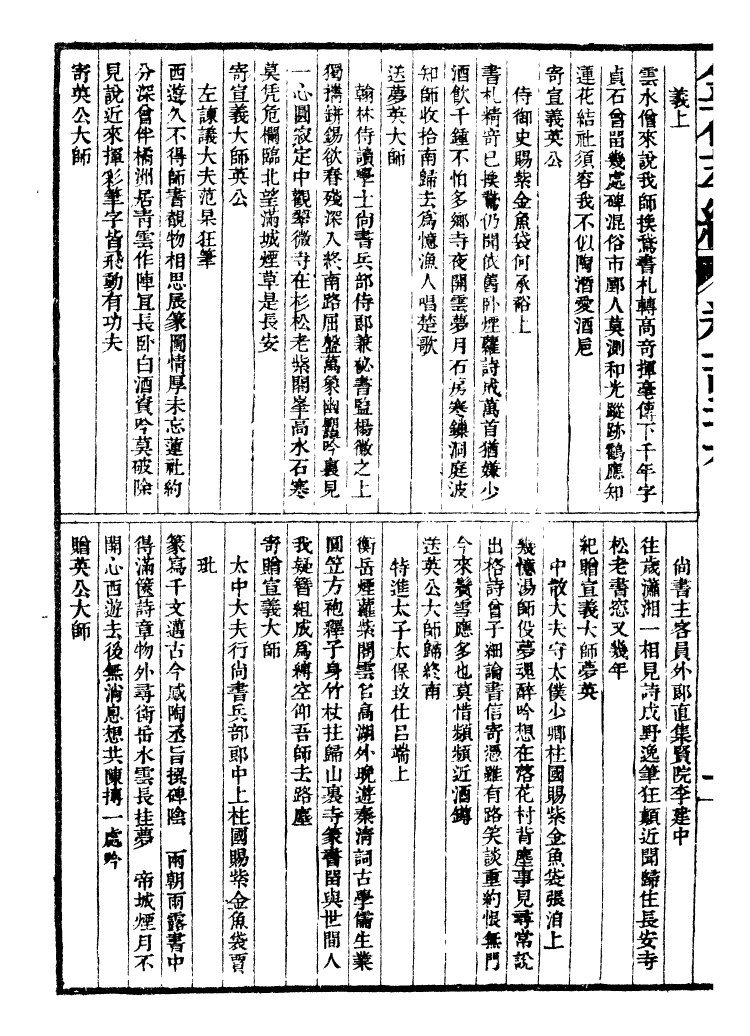 義上
雲水僧來說我師換鵞書札轉高奇揮毫傳下千年字
貞石曾留幾處碑混俗市鄽人莫測和光蹤跡鶴應知
蓮花結社須容我不似陶潛愛酒巵
寄宣義英公
侍御史賜紫金魚袋何承裕上
書札精奇已換鵞仍聞依舊卧煙蘿詩成萬首猶嫌少
酒飲千鍾不怕多鄉寺夜開雲夢月石房寒鏁洞庭波
知師收拾南歸去為憶漁人唱楚歌
送夢英大師
翰林侍讀學士尚書兵部侍郎兼秘書監楊徽之上
獨攜缾錫欲春殘深入終南路屈盤萬象幽吟裏見
一心圓寂定中觀翠微寺在杉松老紫閣峯高水石寒
莫凭危欄臨北望滿城煙草是長安
寄宣義大師英公
左諫議大夫范杲狂筆
西遊久不得師書覩物相思展篆圖情厚未忘蓮社約
分深曾伴橘洲居靑雲作陣宜長卧白酒資吟莫破除
見說近來揮彩筆字皆飛動有功夫
寄英公大師
尚書主客員外郎直集賢院李建中
往歲瀟湘一相見詩成野逸筆狂顛近聞歸住長安寺
松老書窓又幾年
紀贈宣義大師夢英
中散大夫守太僕少卿柱國賜紫金魚袋張洎上
幾憶湯師役夢魂醉吟想在落花村背塵事見尋常說
出格詩曾子細論書信寄憑雖有路笑談重約悵無門
今來鬢雪應多也莫惜頻頻近酒罇
送英公大師歸終南
特進太子太保致仕呂端上
衡岳煙蘿紫閣雲名高湖外晚遊秦清詞古學儒生業
圓笠方袍釋子身竹杖拄歸山裏寺篆書留與世間人
我疑簪組成為縛空仰吾師去路塵
寄贈宣義大師
太中大夫行尚書兵部郎中上柱國賜紫金魚袋賈
玭
篆寫千文邁古今感陶丞旨撰碑陰 兩朝雨露書中
得滿篋詩章物外尋衡岳水雲長挂夢 帝城煙月不
開心西遊去後無消息想共陳摶一處吟
贈英公大師